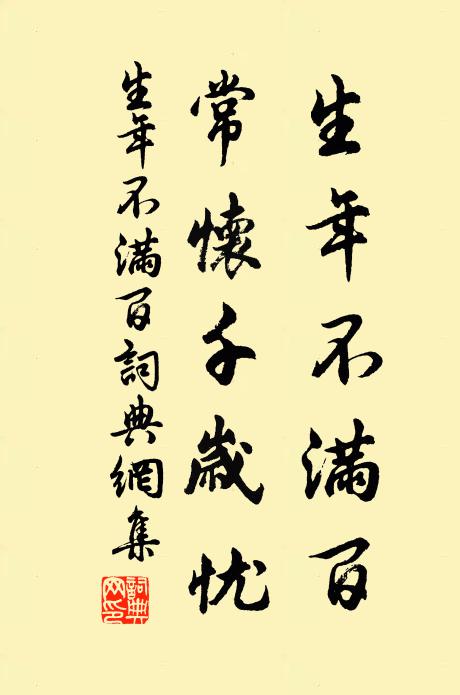 生年不满百
常懷千歲忧
生年不满百詞典網集
詞典网印